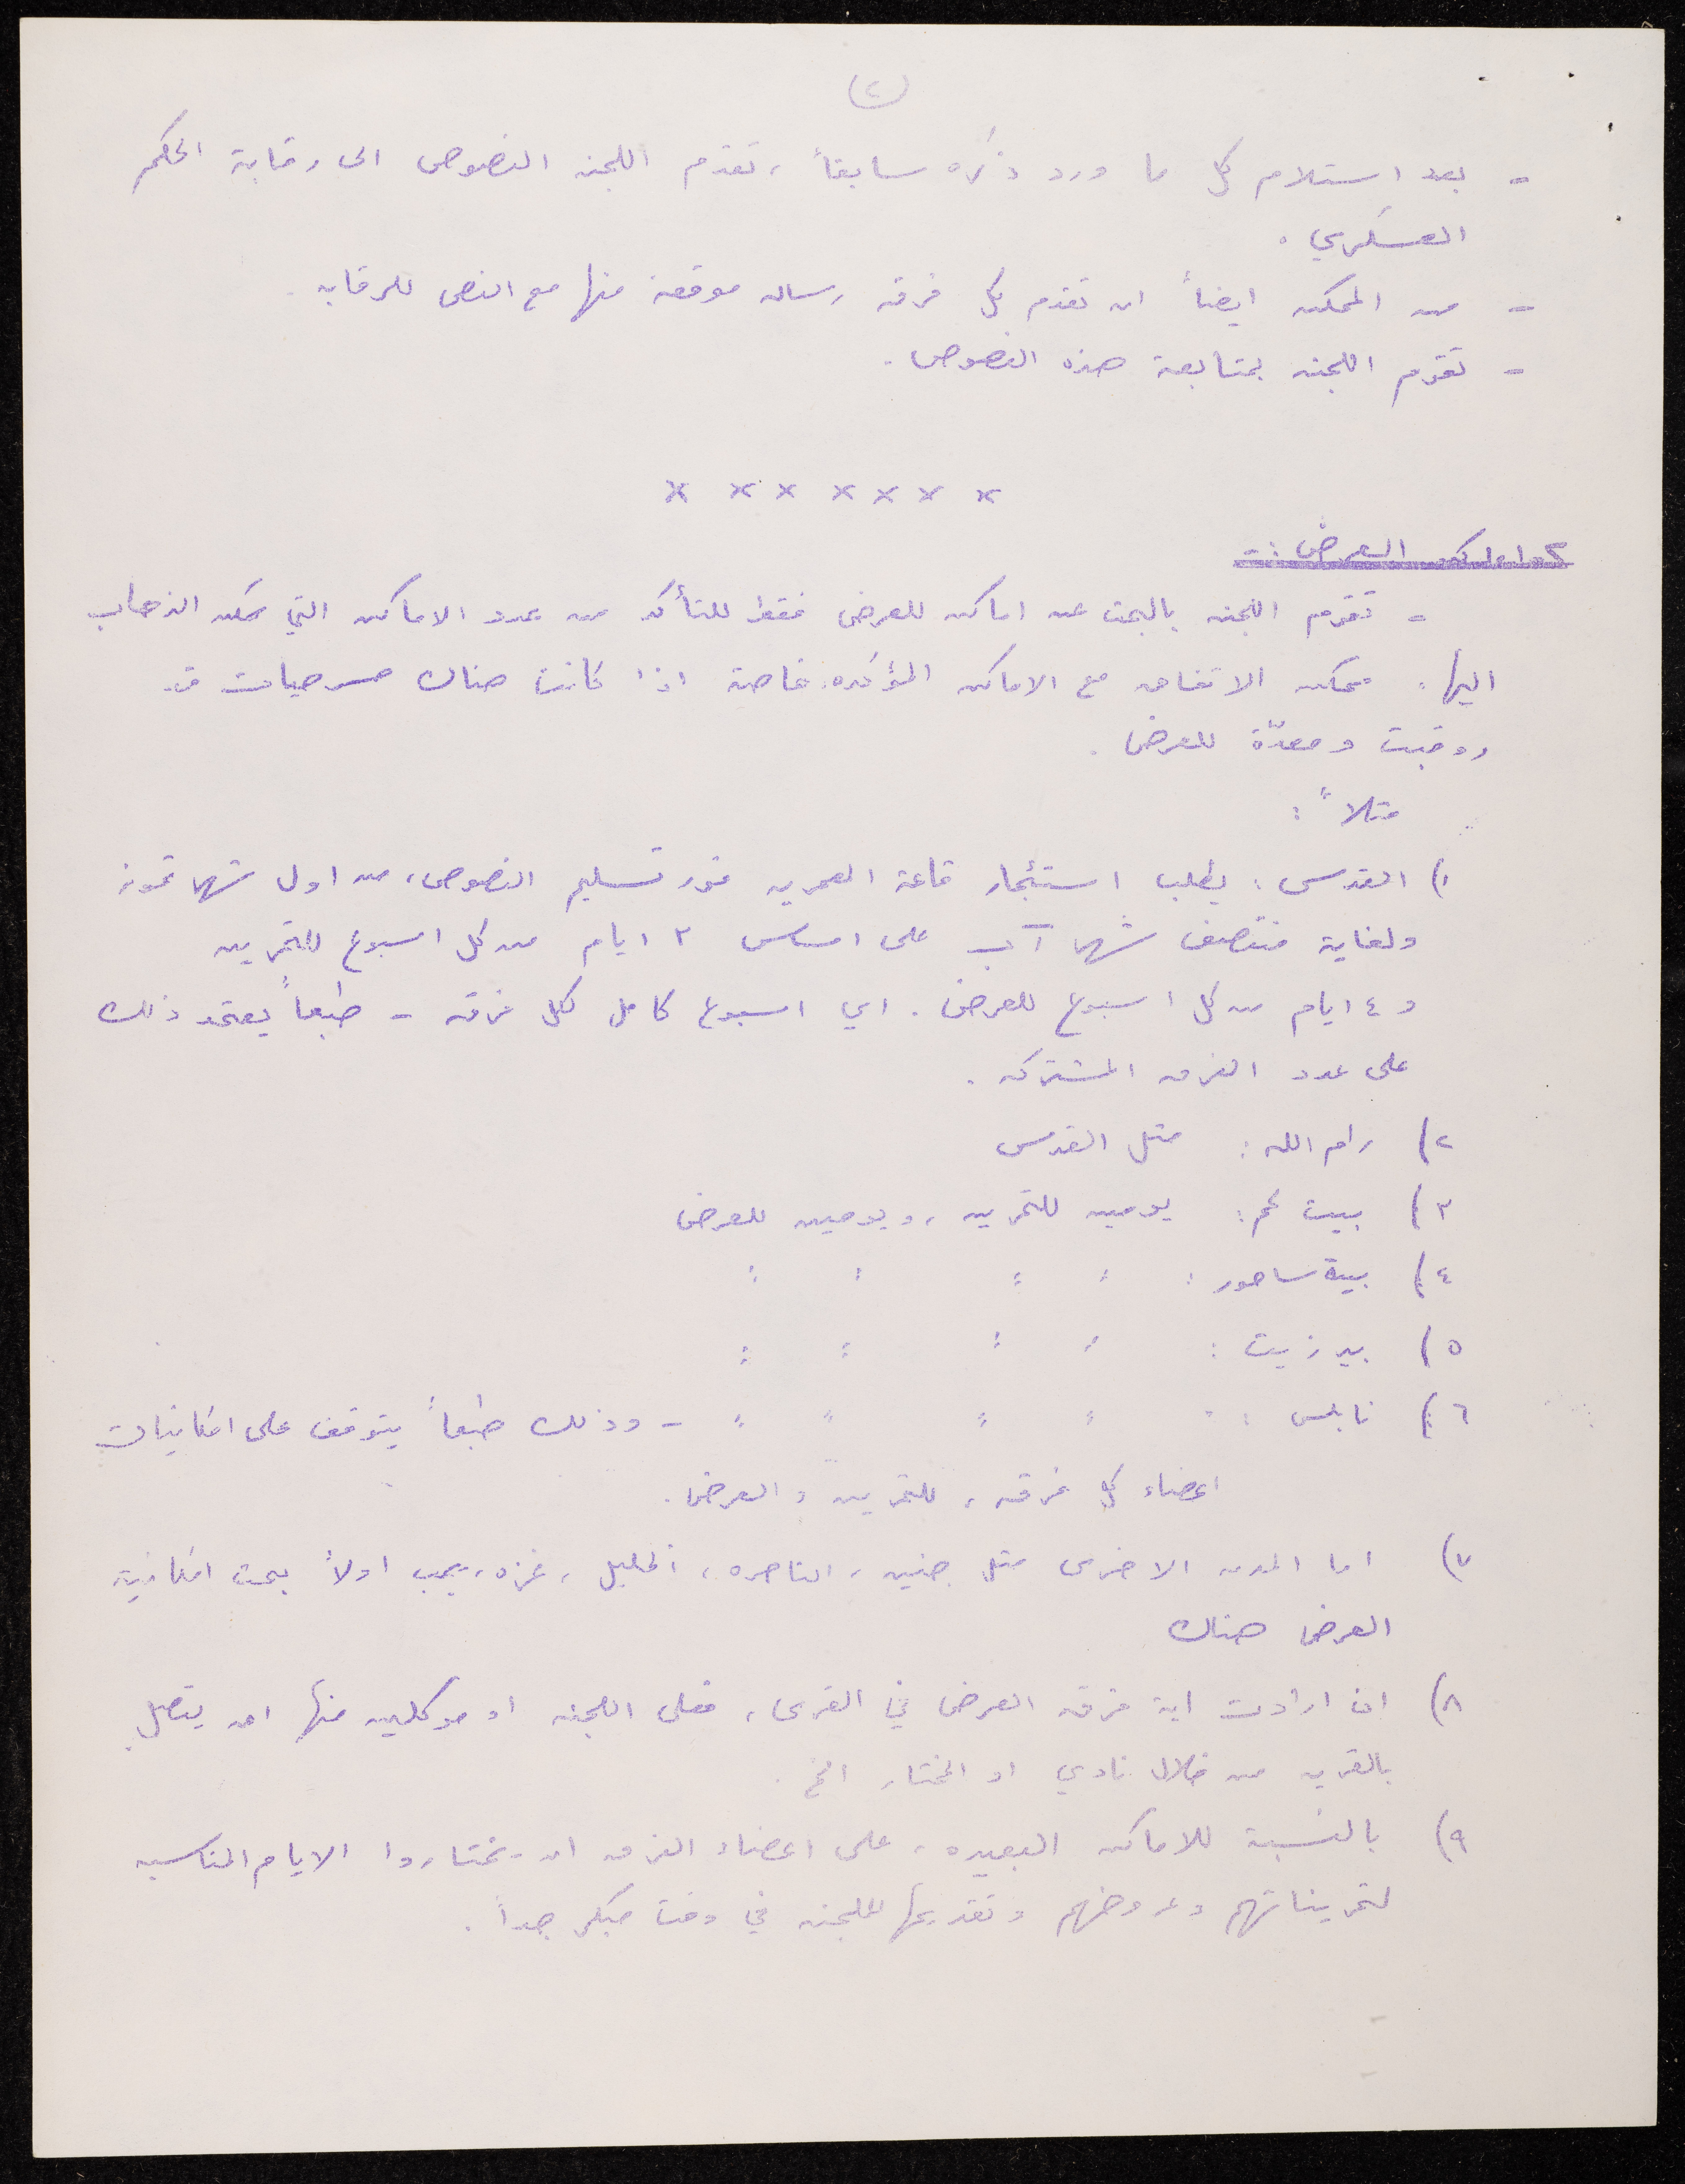 (٢)
- بعد استلام كل ما ورد ذكره سابقاً، تقدم اللجنه النصوص الى رقابة الحكم
العسكري.
- من الممكن ايضاً ان تقدم كل فرقه رساله موقعة منها مع النص للرقابه.
- تقوم اللجنه بمتابعة هذه النصوص.
* * * * * * *
اماكن العرض:-
- تقوم اللجنه بالبحث عن اماكن للعرض فقط للتأكد من عدد الاماكن التي يمكن الذهاب
اليها. ممكن الاتفاق مع الاماكن المؤكده خاصة اذا كانت هناك مسرحيات قد
روقبت ومعدّة للعرض.
مثلاً:
١) القدس: يطلب استئجار قاعة العمريه فور تسليم النصوص، من اول شهر تموز
ولغاية منتصف شهر آب على اساس ٣ ايام من كل اسبوع للتمرين
و٤ ايام من كل اسبوع للعرض. اي اسبوع كامل لكل فرقه - طبعاً يعتمد ذلك
على عدد الفرق المشتركه.
٢) رام الله: مثل القدس
٣) بيت لحم: يومين للتمرين، ويومين للعرض
٤) بيت ساحور: : : : :
٥) بير زيت: : : : :
٦) نابلس: : : : : - وذلك طبعاً يتوقف على امكانيات
اعضاء كل فرقه، للتمرين والعرض.
٧) اما المدن الاخرى مثل جنين، الناصره، الخليل، غزه، يجب اولاً بحث امكانية
العرض هناك
٨) ان ارادت اية فرقه العرض في القرى، فعلى اللجنه او موكلين منها ان يتصل
بالقريه من خلال نادي او المختار الخ.
٩) بالنسبة للاماكن البعيده، على اعضاء الفرق ان يختاروا الايام المناسبه
لتمريناتهم وعروضهم وتقديمها للجنه في وقت مبكر جداً.